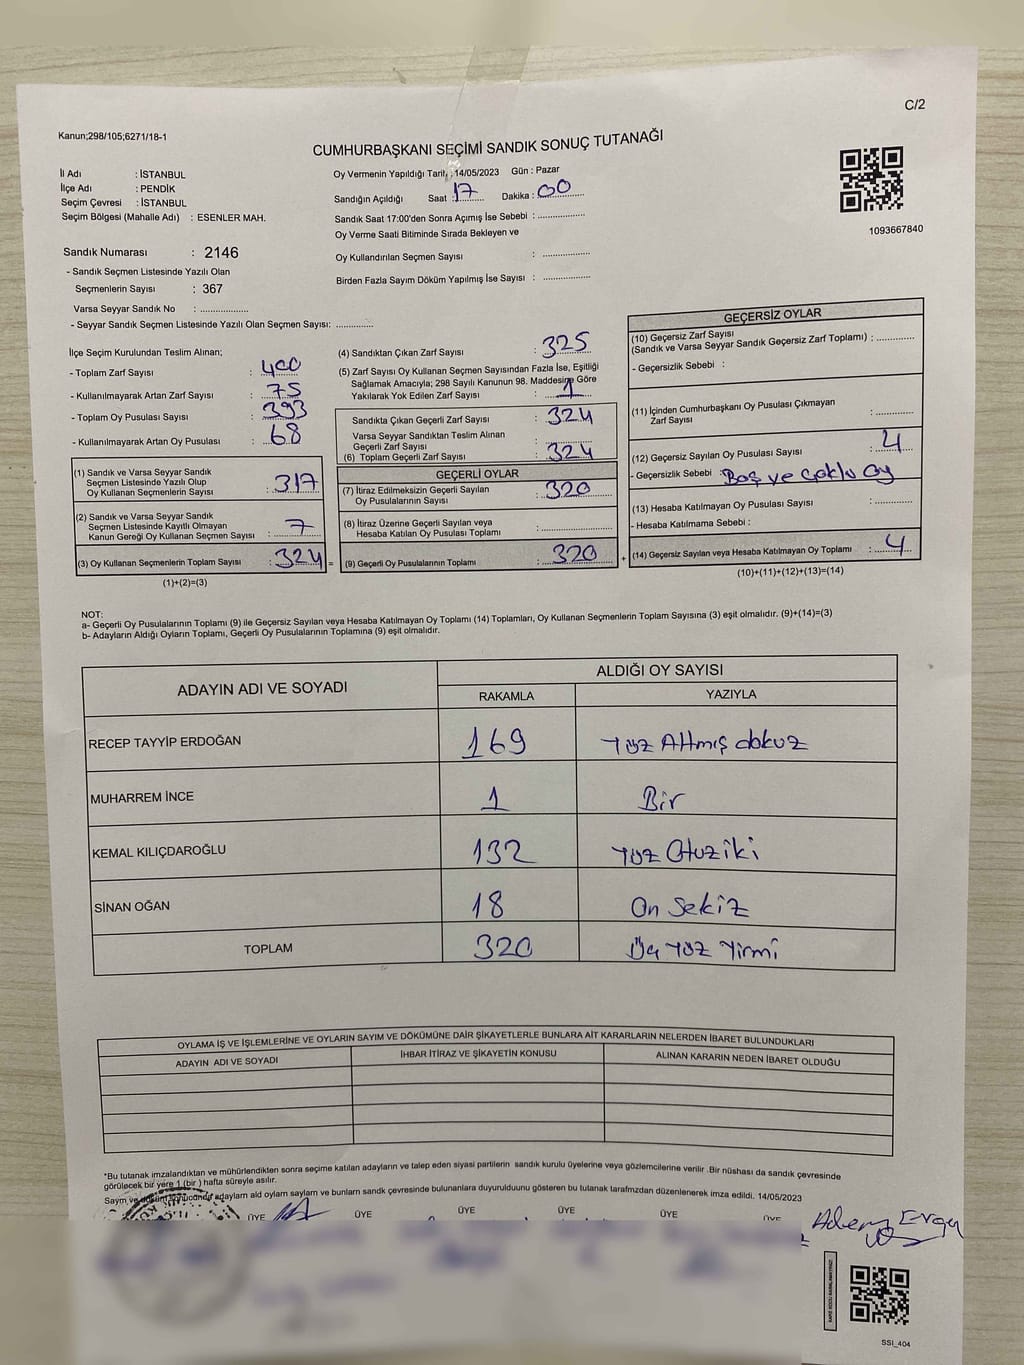 C/2
Kanun;298/105;6271/18-1
CUMHURBAŞKANI SEÇİMİ SANDIK SONUÇ TUTANAĞI
İl Adı : İSTANBUL
İlçe Adı : PENDİK
Seçim Çevresi : İSTANBUL
Seçim Bölgesi (Mahalle Adı) : ESENLER MAH.
Oy Vermenin Yapıldığı Tarih : 14/05/2023 Gün : Pazar
Sandığın Açıldığı Saat : 17 Dakika : 00
Sandık Saat 17:00'den Sonra Açımış İse Sebebi : ................
Oy Verme Saati Bitiminde Sırada Bekleyen ve
Oy Kullandırılan Seçmen Sayısı : ................
Birden Fazla Sayım Döküm Yapılmış İse Sayısı : ................
1093667840
Sandık Numarası : 2146
- Sandık Seçmen Listesinde Yazılı Olan
Seçmenlerin Sayısı : 367
Varsa Seyyar Sandık No : ................
- Seyyar Sandık Seçmen Listesinde Yazılı Olan Seçmen Sayısı: ............
İlçe Seçim Kurulundan Teslim Alınan;
- Toplam Zarf Sayısı : 400
- Kullanılmayarak Artan Zarf Sayısı : 75
- Toplam Oy Pusulası Sayısı : 393
- Kullanılmayarak Artan Oy Pusulası : 68
(1) Sandık ve Varsa Seyyar Sandık
Seçmen Listesinde Yazılı Olup
Oy Kullanan Seçmenlerin Sayısı : 317
(2) Sandık ve Varsa Seyyar Sandık
Seçmen Listesinde Kayıtlı Olmayan
Kanun Gereği Oy Kullanan Seçmen Sayısı : 7
(3) Oy Kullanan Seçmenlerin Toplam Sayısı : 324 =
(1)+(2)=(3)
(4) Sandıktan Çıkan Zarf Sayısı : 325
(5) Zarf Sayısı Oy Kullanan Seçmen Sayısından Fazla İse, Eşitliği
Sağlamak Amacıyla; 298 Sayılı Kanunun 98. Maddesine Göre
Yakılarak Yok Edilen Zarf Sayısı : 1
Sandıkta Çıkan Geçerli Zarf Sayısı : 324
Varsa Seyyar Sandıktan Teslim Alınan
Geçerli Zarf Sayısı : ............
(6) Toplam Geçerli Zarf Sayısı : 324
GEÇERLİ OYLAR
(7) İtiraz Edilmeksizin Geçerli Sayılan
Oy Pusulalarının Sayısı : 320
(8) İtiraz Üzerine Geçerli Sayılan veya
Hesaba Katılan Oy Pusulası Toplamı : ................
(9) Geçerli Oy Pusulalarının Toplamı : 320 +
GEÇERSİZ OYLAR
(10) Geçersiz Zarf Sayısı
(Sandık ve Varsa Seyyar Sandık Geçersiz Zarf Toplamı) : ............
- Geçersizlik Sebebi :
(11) İçinden Cumhurbaşkanı Oy Pusulası Çıkmayan
Zarf Sayısı : ............
(12) Geçersiz Sayılan Oy Pusulası Sayısı : 4
- Geçersizlik Sebebi : Boş ve çoklu oy
(13) Hesaba Katılmayan Oy Pusulası Sayısı : ............
- Hesaba Katılmama Sebebi :
(14) Geçersiz Sayılan veya Hesaba Katılmayan Oy Toplamı : 4
(10)+(11)+(12)+(13)=(14)
NOT:
a- Geçerli Oy Pusulalarının Toplamı (9) ile Geçersiz Sayılan veya Hesaba Katılmayan Oy Toplamı (14) Toplamları, Oy Kullanan Seçmenlerin Toplam Sayısına (3) eşit olmalıdır. (9)+(14)=(3)
b- Adayların Aldığı Oyların Toplamı, Geçerli Oy Pusulalarının Toplamına (9) eşit olmalıdır.
ADAYIN ADI VE SOYADI ALDIĞI OY SAYISI
RAKAMLA YAZIYLA
RECEP TAYYİP ERDOĞAN 169 Yüz Altmış dokuz
MUHARREM İNCE 1 Bir
KEMAL KILIÇDAROĞLU 132 Yüz Otuziki
SİNAN OĞAN 18 On Sekiz
TOPLAM 320 Üç Yüz Yirmi
OYLAMA İŞ VE İŞLEMLERİNE VE OYLARIN SAYIM VE DÖKÜMÜNE DAİR ŞİKAYETLERLE BUNLARA AİT KARARLARIN NELERDEN İBARET BULUNDUKLARI
ADAYIN ADI VE SOYADI İHBAR İTİRAZ VE ŞİKAYETİN KONUSU ALINAN KARARIN NEDEN İBARET OLDUĞU
*Bu tutanak imzalandıktan ve mühürlendikten sonra seçime katılan adayların ve talep eden siyasi partilerin sandık kurulu üyelerine veya gözlemcilerine verilir .Bir nüshası da sandık çevresinde
görülecek bir yere 1 (bir ) hafta süreyle asılır.
Sayım ve döküm sonucunda adayların aldığı oyların sayıları ve bunların sandık çevresinde bulunanlara duyurulduğunu gösteren bu tutanak tarafımızdan düzenlenerek imza edildi. 14/05/2023
ÜYE ÜYE ÜYE ÜYE ÜYE ÜYE
Adem
SSI_404